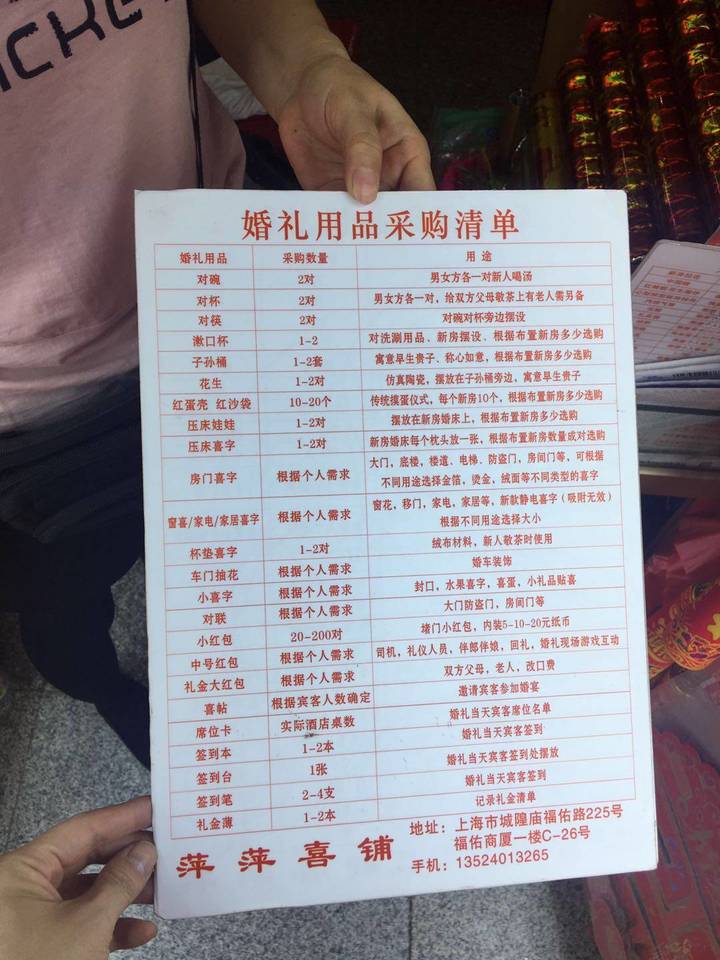 ICKET
婚礼用品采购清单
婚礼用品 采购数量 用途
对碗 2对 男女方各一对新人喝汤
对杯 2对 男女方各一对,给双方父母敬茶上有老人需另备
对筷 2对 对碗对杯旁边摆设
漱口杯 1-2 对洗涮用品、新房摆设、根据布置新房多少选购
子孙桶 1-2套 寓意早生贵子、称心如意,根据布置新房多少选购
花生 1-2对 仿真陶瓷,摆放在子孙桶旁边,寓意早生贵子
红蛋壳 红沙袋 10-20个 传统摸蛋仪式,每个新房10个,根据布置新房多少选购
压床娃娃 1-2对 摆放在新房婚床上,根据布置新房多少选购
压床喜字 1-2对 新房婚床每个枕头放一张,根据布置新房数量成对选购
房门喜字 根据个人需求 大门,底楼,楼道、电梯、防盗门,房间门等,可根据
不同用途选择金箔,烫金,绒面等不同类型的喜字
窗喜/家电/家居喜字 根据个人需求 窗花,移门,家电,家居等,新款静电喜字(吸附无效)
根据不同用途选择大小
杯垫喜字 1-2对 绒布材料,新人敬茶时使用
车门抽花 根据个人需求 婚车装饰
小喜字 根据个人需求 封口,水果喜字,喜蛋,小礼品贴喜
对联 根据个人需求 大门防盗门,房间门等
小红包 20-200对 堵门小红包,内装5-10-20元纸币
中号红包 根据个人需求 司机,礼仪人员,伴郎伴娘,回礼,婚礼现场游戏互动
礼金大红包 根据个人需求 双方父母,老人,改口费
喜帖 根据宾客人数确定 邀请宾客参加婚宴
席位卡 实际酒店桌数 婚礼当天宾客席位名单
签到本 1-2本 婚礼当天宾客签到
签到台 1张 婚礼当天宾客签到处摆放
签到笔 2-4支 婚礼当天宾客签到
礼金薄 1-2本 记录礼金清单
萍萍喜铺
地址:上海市城隍庙福佑路225号
福佑商厦一楼C-26号
手机:13524013265